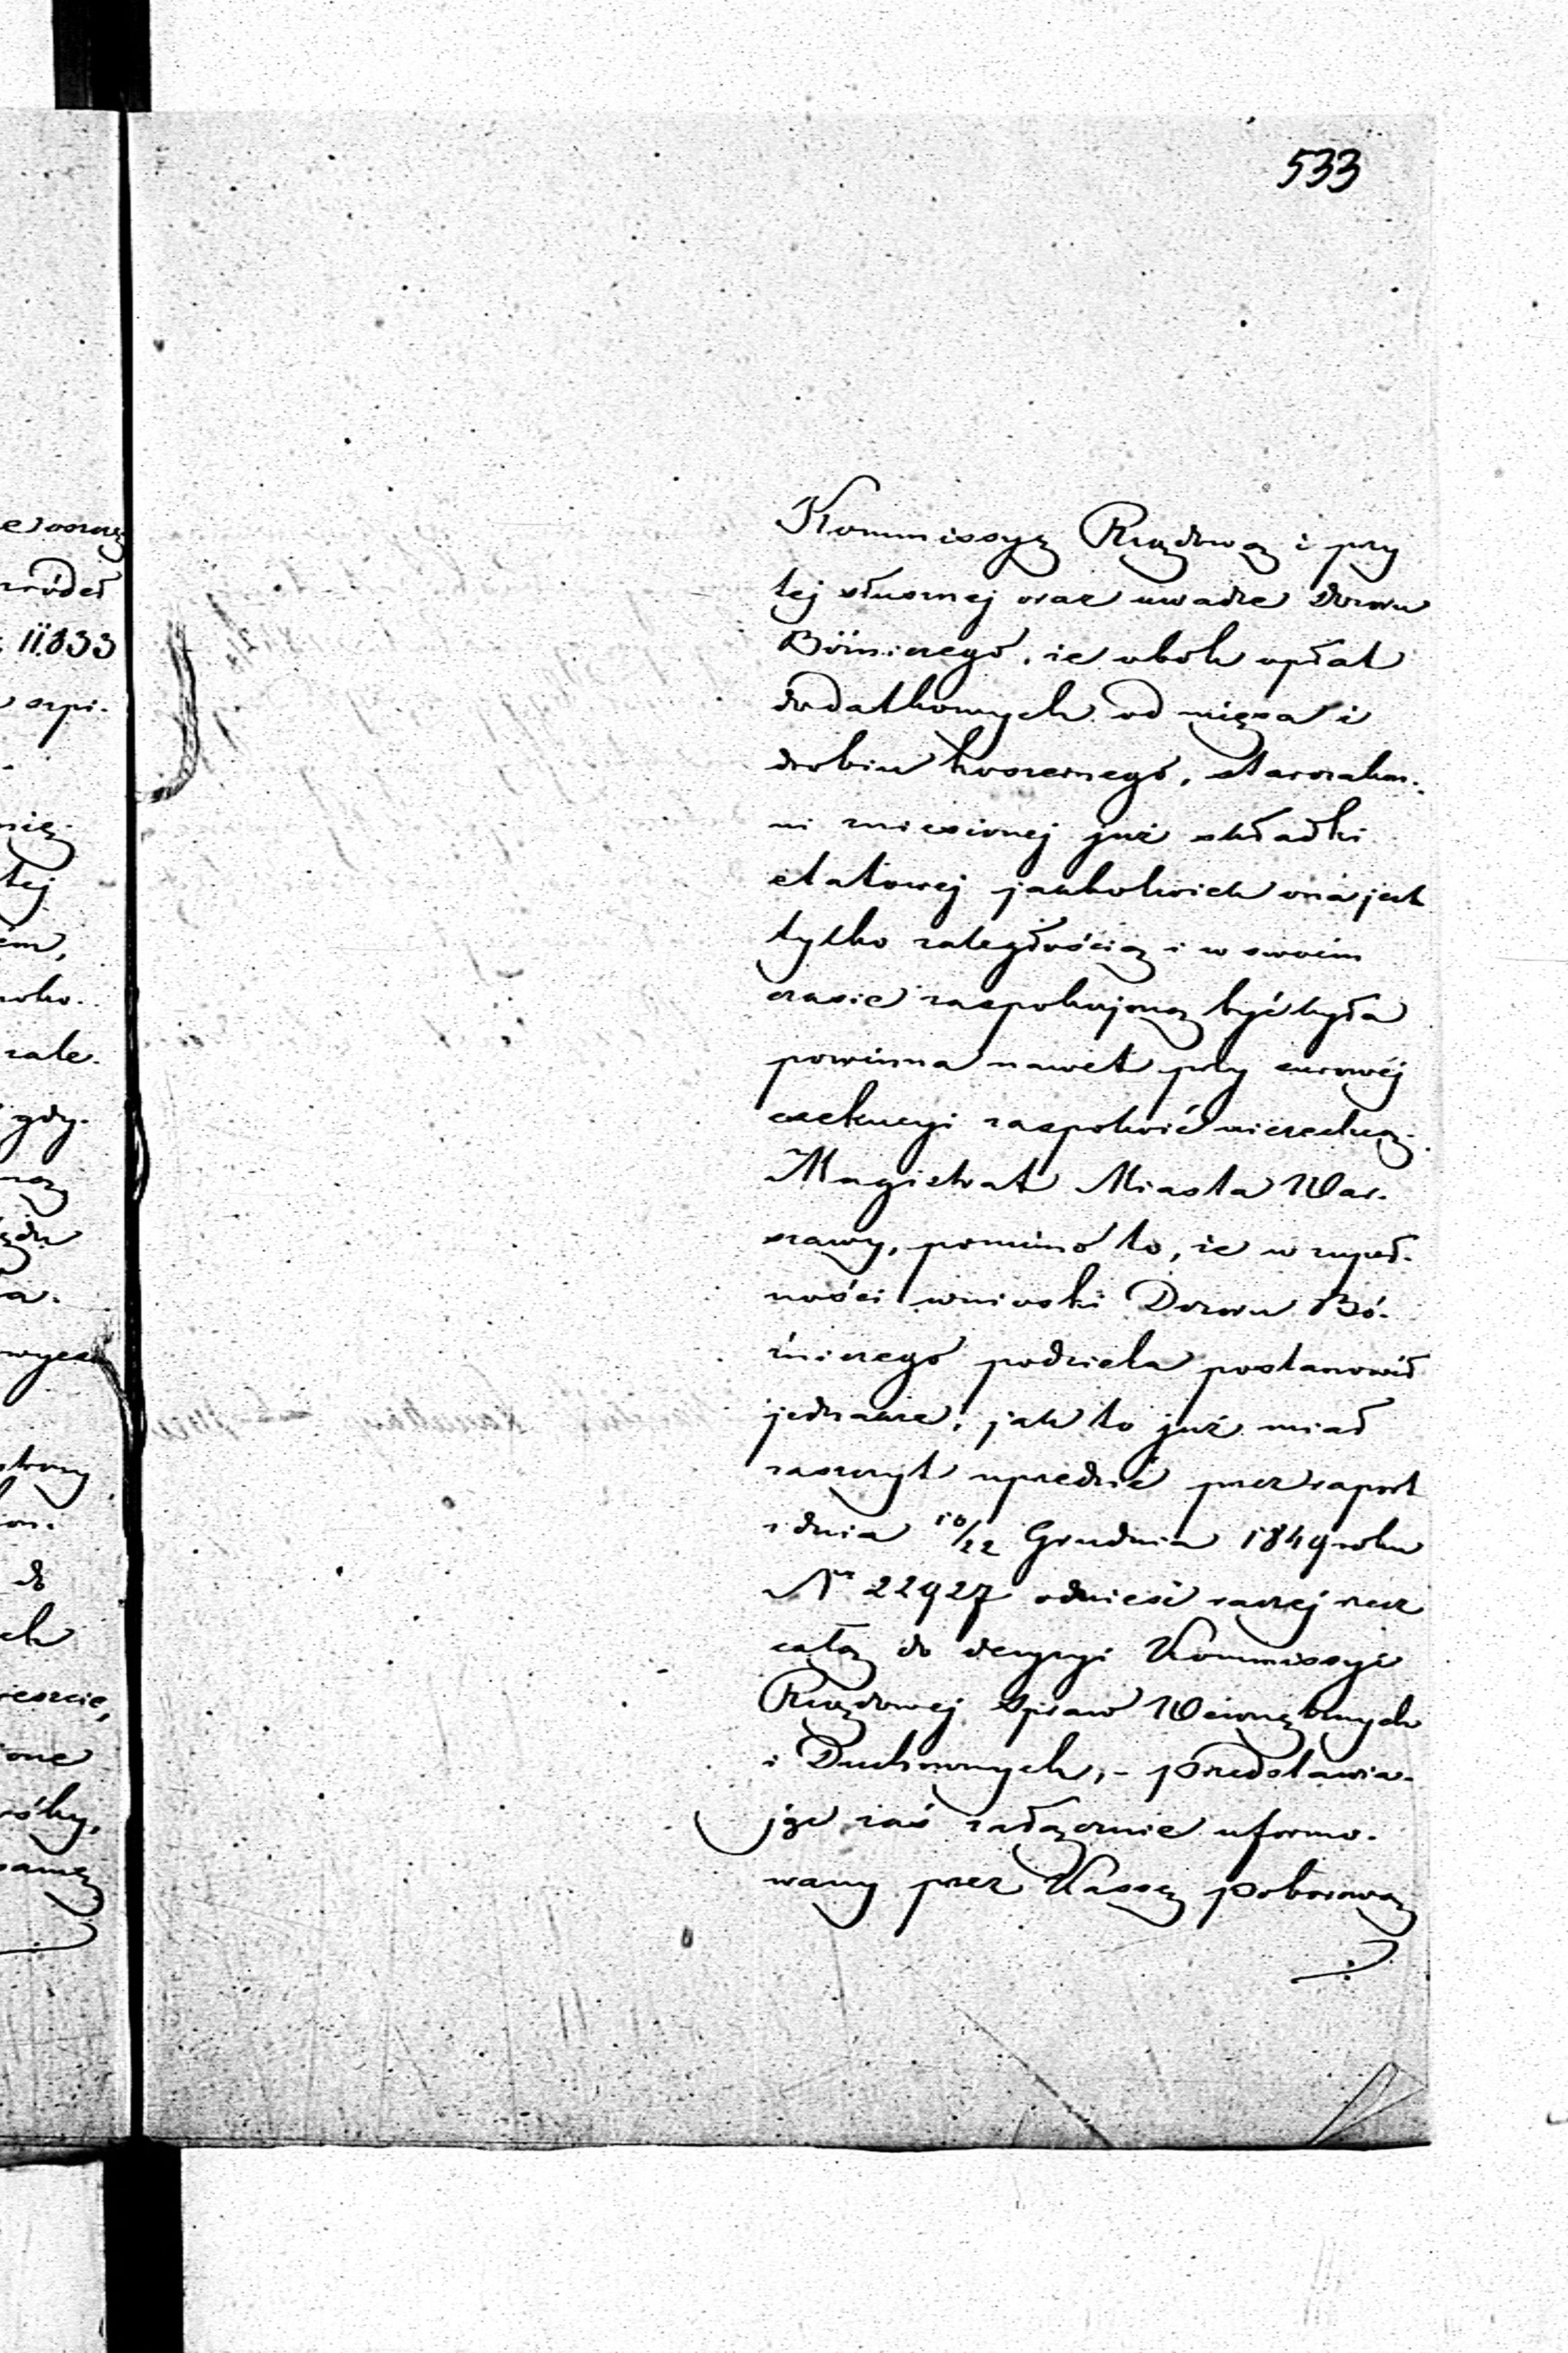 533
Kommissyą Rządową i przy
tej słusznej oraz uwadze Dozoru
Bóżniczego, że obok opłat
dodatkowych od mięsa i
drobiu koszernego, starozakon-
ni zniesionej już składki
etatowej jakkolwiek ona jest
tylko zaległością i w swoim
czasie zaspokojoną być była
powinna nawet przy surowéj
exekucyi zaspokoić niezechcą.
Magistrat Miasta War-
szawy, pomimo to, że w zupeł-
ności wnioski Dozoru Bó-
żniczego podziela postanowił
jednakże, jak to już miał
zaszczyt uprzednio przez raport
z dnia 10/22 Grudnia 1849 roku
Nr 22927 odnieść raczej rzecz
całą do decyzyi Kommissyi
Rządowej Spraw Wewnętrznych
i Duchownych, - przedstawia-
jąc zaś załącznie uformo-
wany przez Kassę Poborową
ródeł
11.833
szpi-
nię
tej
zale-
gdy-
do
one